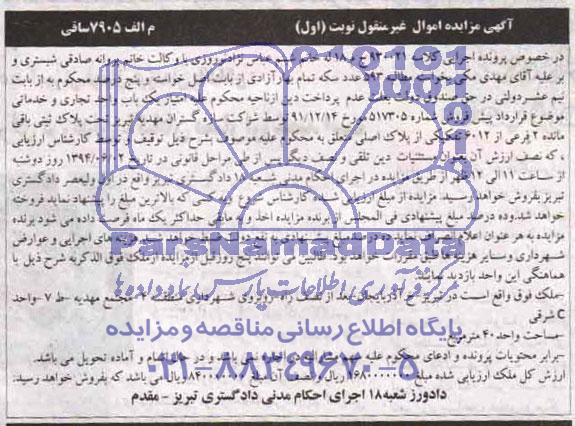 آگهی مزایده اموال غیرمنقول نوبت (اول)
م الف ۷۹۰۵ ساقی
در خصوص پرونده اجرایی کلاسه ۹۳۰۰۲۱ ج م ۱۸ له خانم عباس نژاد نوروزی با وکالت خانم پروانه صادقی شبستری و
بر علیه آقای مهدی مکی بخواسته مطالبه ۵۹۳ عدد سکه تمام بهار آزادی از بابت اصل خواسته و پنج درصد محکوم به از بابت
نیم عشر دولتی در حق صندوق دولت بعلت عدم پرداخت دین از ناحیه محکوم علیه امتیاز یک باب واحد تجاری و خدماتی
موضوع قرارداد پیش فروش شماره ۵۱۷۳۰۵ مورخ ۹۱/۱۲/۱۴ توسط شرکت سازه گستران مهدیه تبریز تحت پلاک ثبتی باقی
مانده ۲ فرعی از ۶۰۱۲ تفکیکی از پلاک اصلی متعلق به محکوم علیه موصوف بشرح ذیل توقیف و توسط کارشناس ارزیابی
و که نصف ارزش آن بعنوان مستثنیات دین تلقی و نصف دیگر پس از طی مراحل قانونی در تاریخ ۱۳۹۴/۰۶/۰۲ روز دوشنبه
از ساعت ۱۱ الی ۱۲ ظهر از طریق مزایده در اجرای احکام مدنی شعبه ۱۸ دادگستری تبریز واقع در اول ولیعصر دادگستری
تبریز بفروش خواهد رسید. مزایده از مبلغ ارزیابی شده کارشناس شروع و کسی که بالاترین مبلغ را پیشنهاد نماید فروخته
خواهد شد. وده درصد مبلغ پیشنهادی فی المجلس از برنده مزایده اخذ و مابقی حداکثر یک ماه فرصت داده می شود برنده
مزایده به هر عنوان اعلام انصراف نماید ده درصد مبلغ پیشنهادی به نفع دولت ضبط خواهد شد و هزینه های اجرایی و عوارض
شهرداری و سایر هزینه ها طبق مقررات خواهد بود. طالبین می توانند پنج روز قبل از مزایده از ملک فوق الذکر به شرح ذیل با
هماهنگی این واحد بازدید نمایند.
-ملک فوق واقع است در تبریز آذربایجان بعد از نصف راه روبروی شهرداری منطقه مجتمع مهدیه -ط ۷ -واحد
C شرقی
-مساحت واحد ۴۰ مترمربع
-برابر محتویات پرونده و ادعای محکوم علیه مورد مزایده در اجاره نمی باشد و در حال اتمام و آماده تحویل می باشد.
ارزش کل ملک ارزیابی شده مبلغ ۱۶۸۰۰۰۰۰۰۰ ریال و نصف آن مبلغ ۸۴۰۰۰۰۰۰۰ ریال می باشد که بفروش خواهد رسید:
دادورز شعبه ۱۸ اجرای احکام مدنی دادگستری تبریز - مقدم
ParsNamadData
مرکز فرآوری اطلاعات پارس نماد داده ها
پایگاه اطلاع رسانی مناقصه و مزایده
۰۲۱-۸۸۳۴۹۶۷۰-۵